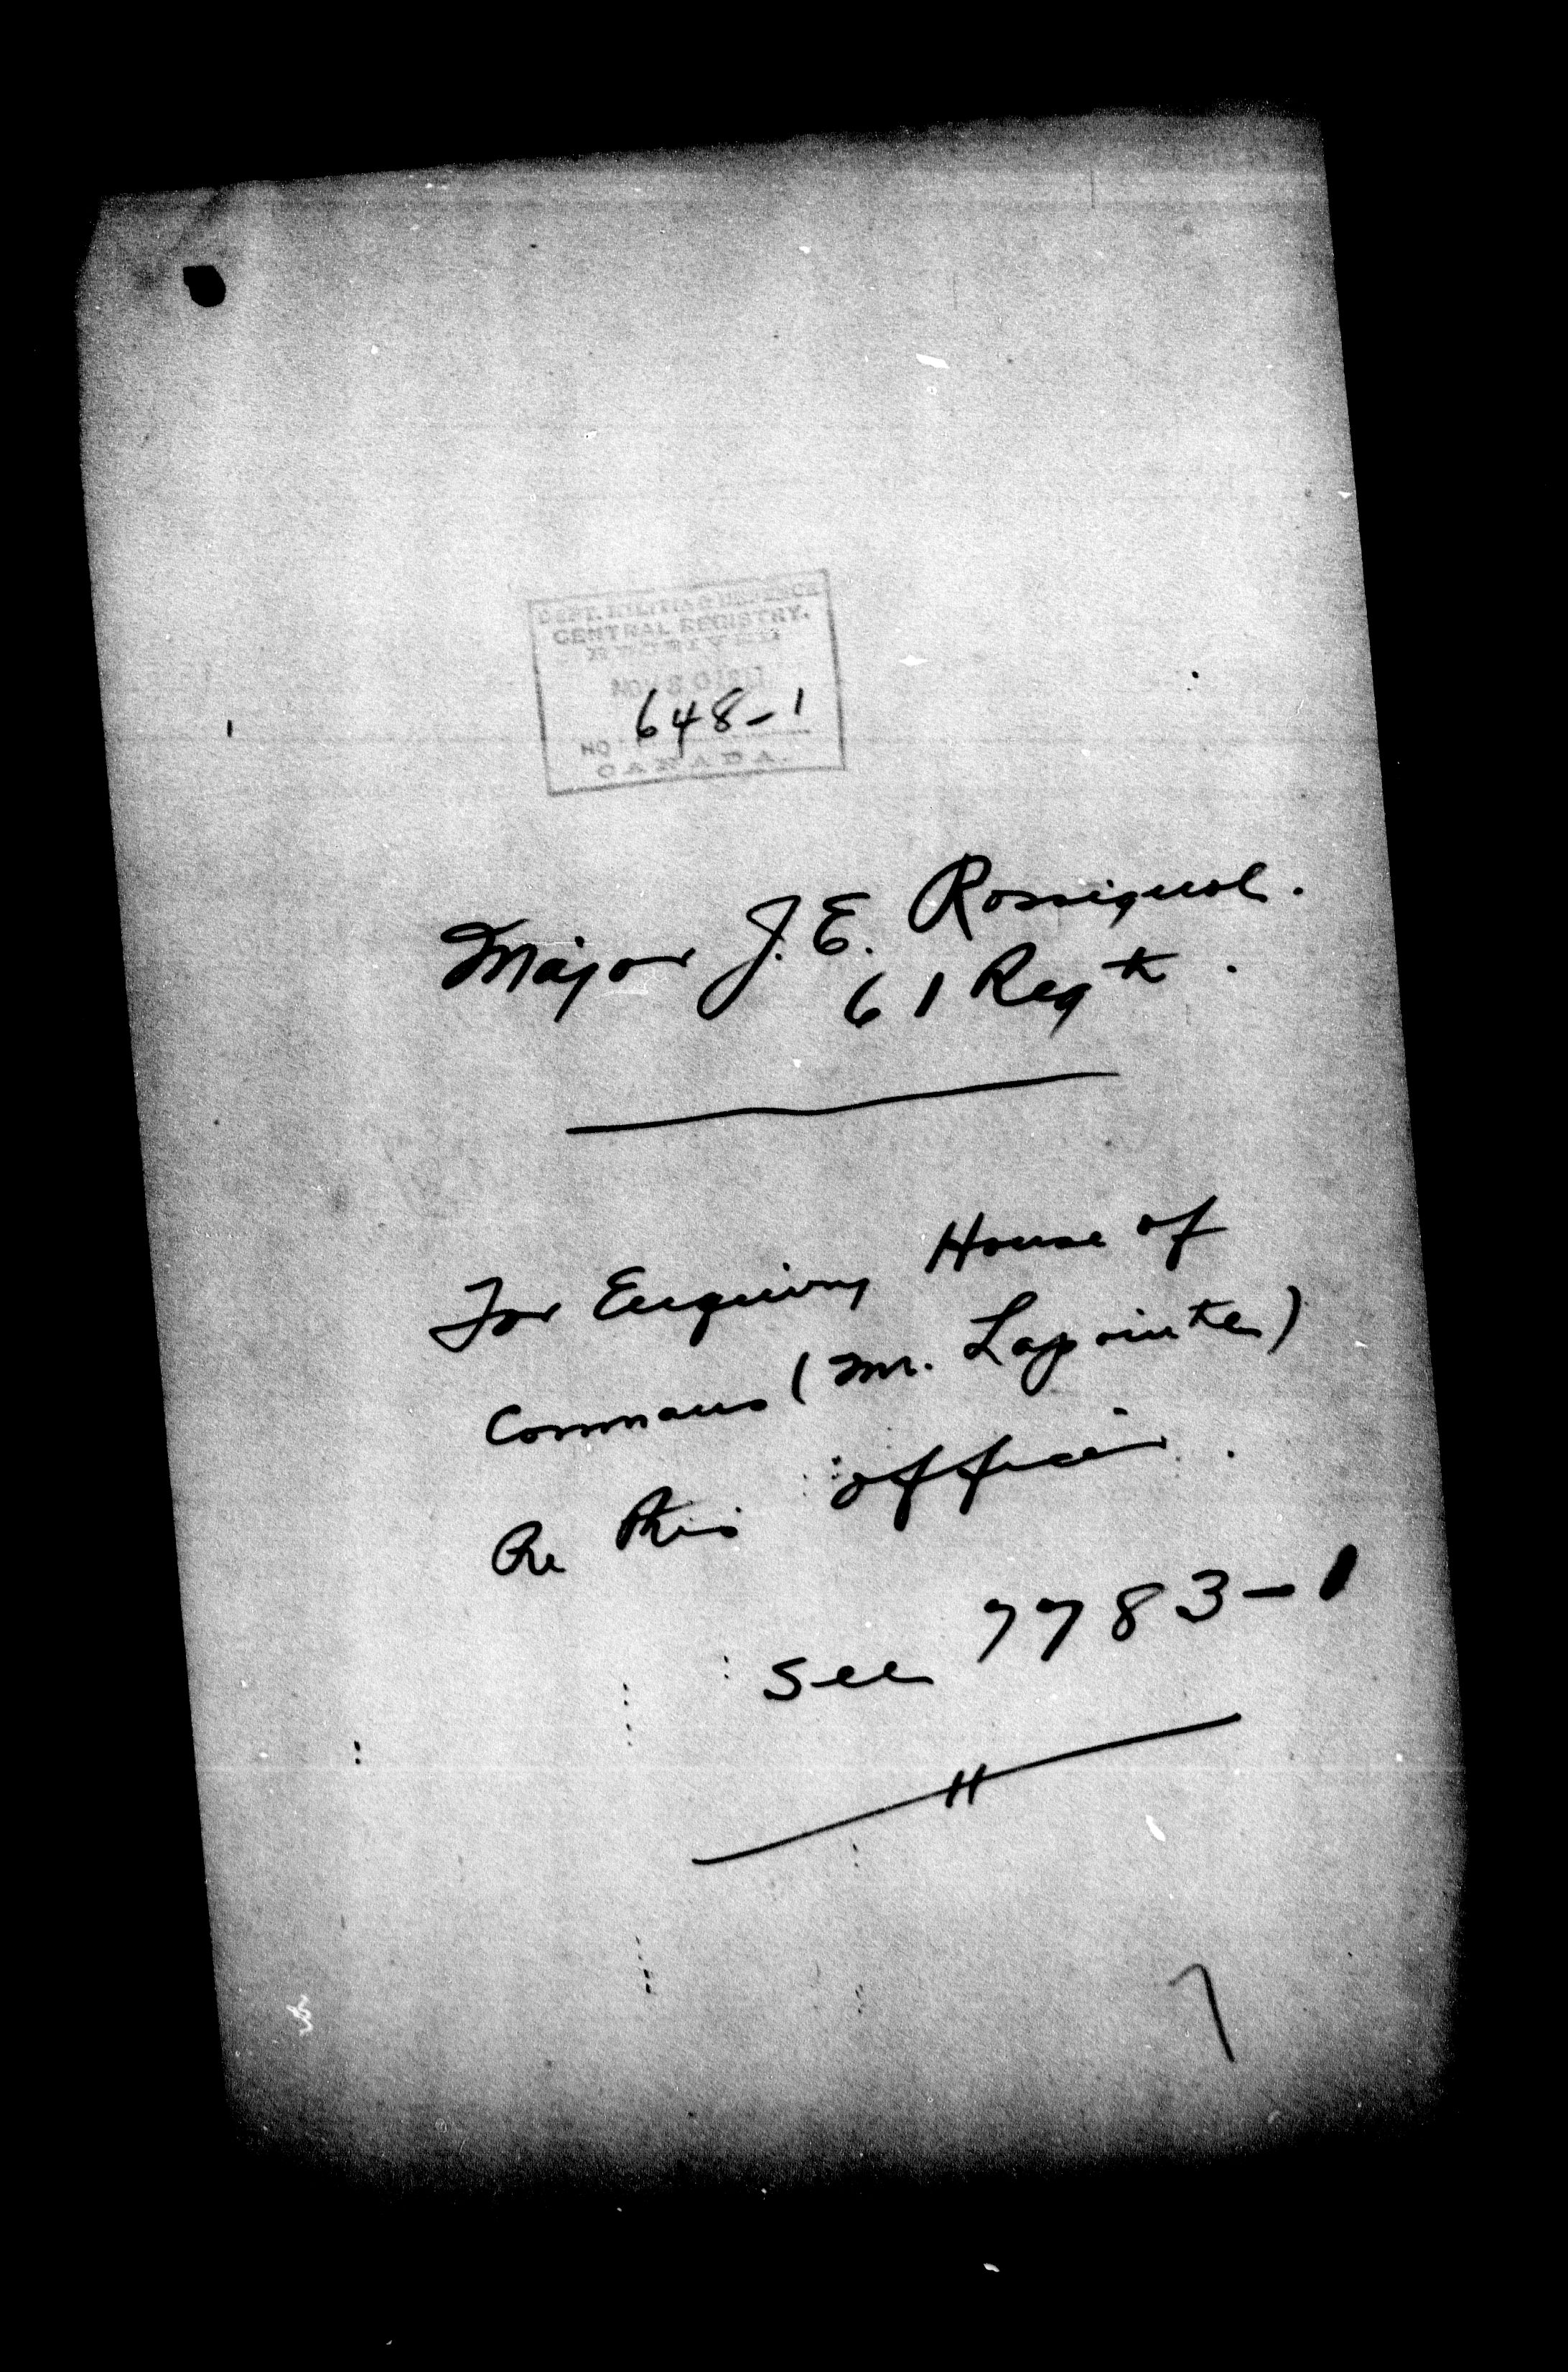 DEPT. MILITIA & DEFENCE
CENTRAL REGISTRY.
RECEIVED
NOV 30
648-1
HQ
CANADA.
Major J. E. Rossignol.
61 Regt.
For Enquiry House of
Commons (Mr. Lapointe)
Re this officer.
See 7783-1
H
7